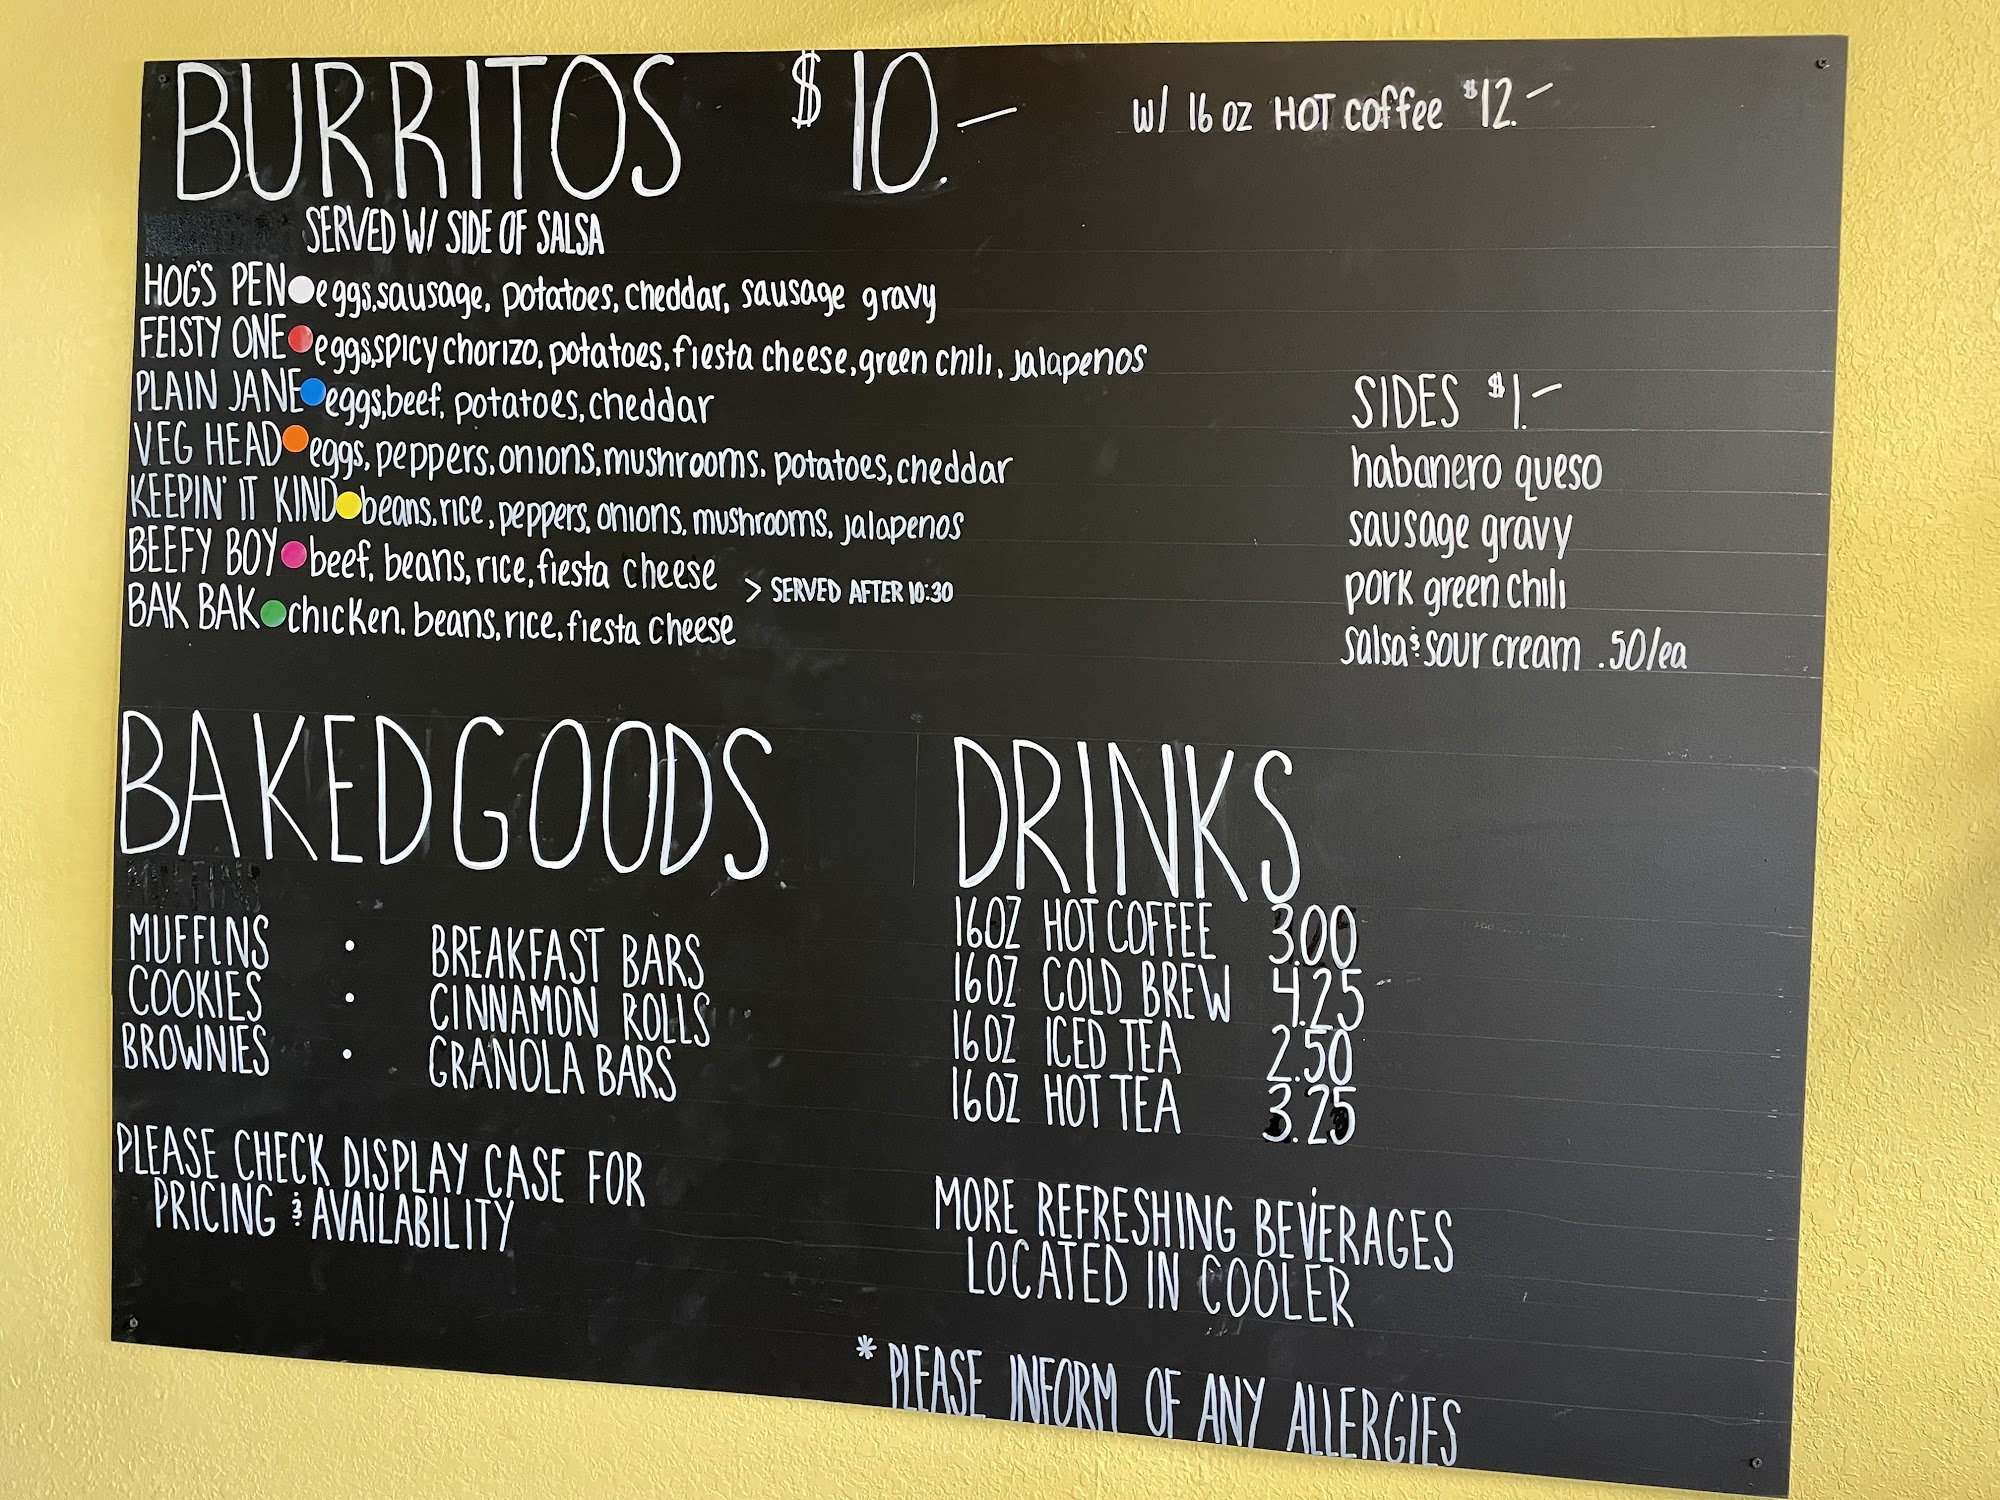 BURRITOS $10.—
w/ 16 oz HOT coffee $12.—
SERVED W/ SIDE OF SALSA
HOG'S PEN eggs, sausage, potatoes, cheddar, sausage gravy
FEISTY ONE eggs, spicy chorizo, potatoes, fiesta cheese, green chili, jalapenos
PLAIN JANE eggs, beef, potatoes, cheddar
VEG HEAD eggs, peppers, onions, mushrooms. potatoes, cheddar
KEEPIN' IT KIND beans, rice, peppers, onions, mushrooms, jalapenos
BEEFY BOY beef, beans, rice, fiesta cheese
> SERVED AFTER 10:30
BAK BAK chicken. beans, rice, fiesta cheese
SIDES $1.—
habanero queso
sausage gravy
pork green chili
salsa & sour cream .50/ea
BAKED GOODS
MUFFINS • BREAKFAST BARS
COOKIES • CINNAMON ROLLS
BROWNIES • GRANOLA BARS
PLEASE CHECK DISPLAY CASE FOR
PRICING & AVAILABILITY
DRINKS
16OZ HOT COFFEE 3.00
16OZ COLD BREW 4.25
16OZ ICED TEA 2.50
16OZ HOT TEA 3.25
MORE REFRESHING BEVERAGES
LOCATED IN COOLER
* PLEASE INFORM OF ANY ALLERGIES